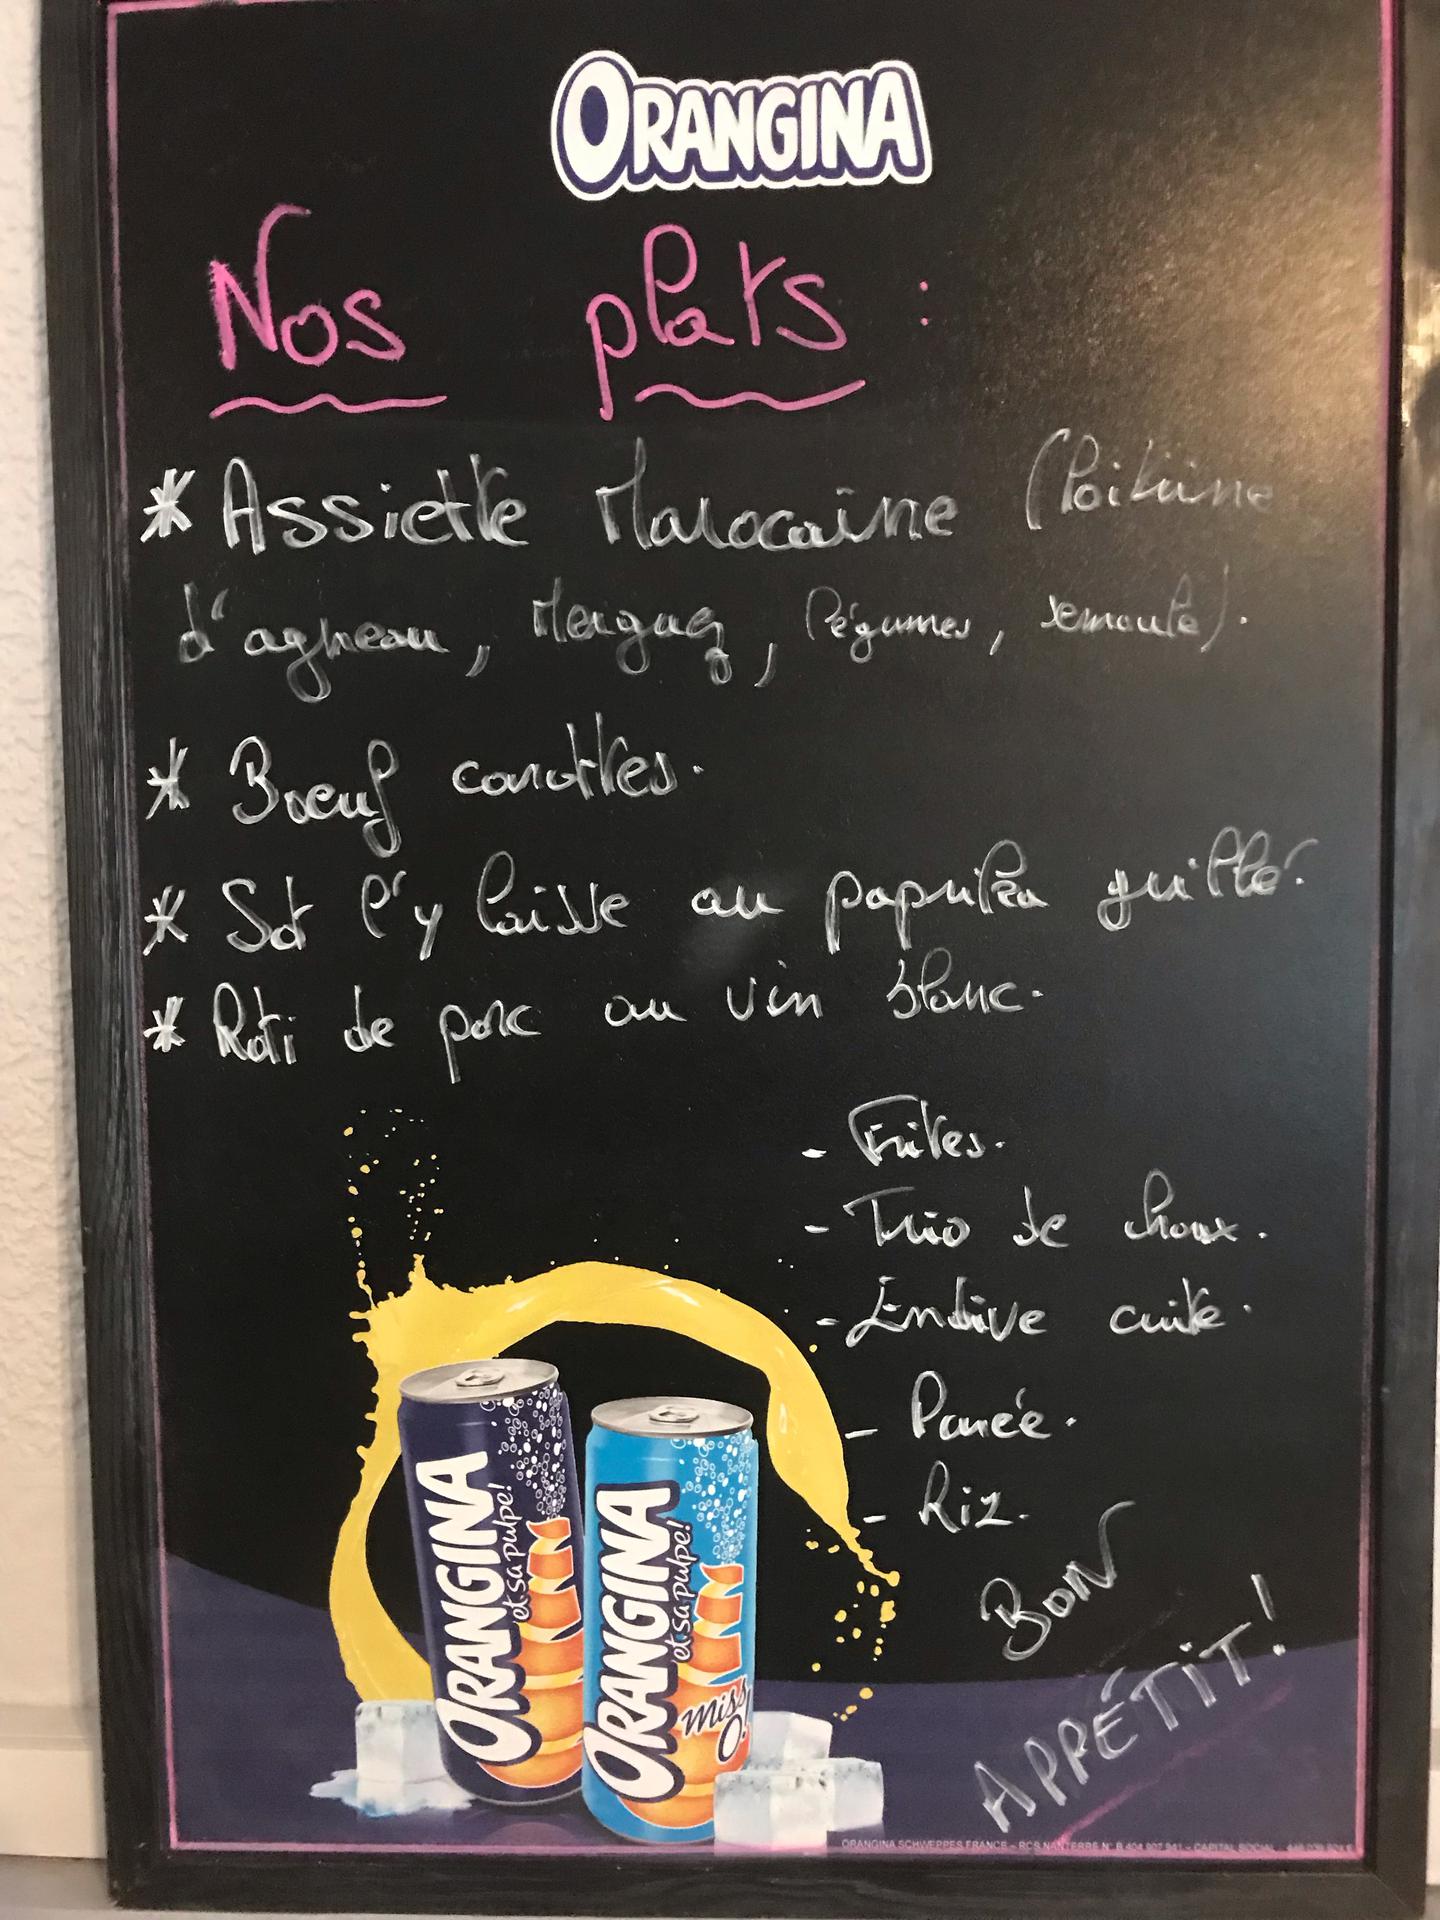 ORANGINA
Nos plats :
* Assiette Marocaine (Poitrine
d'agneau, Merguez, légumes, semoule).
* Boeuf carottes.
* Sot l'y laisse au paprika grillé.
* Roti de porc au vin blanc.
- Frites.
- Trio de choux.
- Endive cuite.
- Purée.
- Riz.
BON
APPÉTIT!
ORANGINA
et sa pulpe!
ORANGINA
et sa pulpe!
miss
O!
ORANGINA SCHWEPPES FRANCE - RCS NANTERRE N° B 404 907 941 - CAPITAL SOCIAL